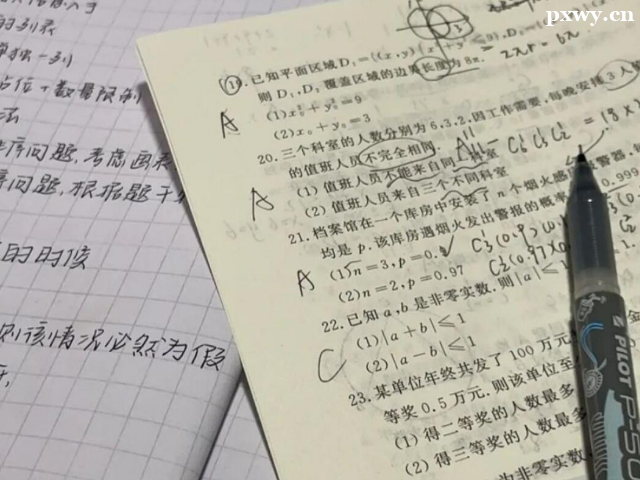 pxwy.cn
的列表
单独一列
占位+数量限制
法
序问题,考虑画
问题,根据题干
的时候
则该情况必然为假
19.已知平面区域D₁={(x,y)|x²+y²≤9},D₂
则D₁,D₂覆盖区域的边界长度为8π.
2πr=6π
(1)x₀²+y₀²=9
(2)x₀+y₀=3
A
20.三个科室的人数分别为6,3,2.因工作需要,每晚安排3人
的值班人员不完全相同.
(1)值班人员不能来自同一科室
(2)值班人员来自三个不同科室
A
21.档案馆在一个库房中安装了n个烟火感应报警器,每
均是p.该库房遇烟火发出警报的概率
0.999
(1)n=3,p=0.9
(2)n=2,p=0.97
A
22.已知a,b是非零实数.则|a|≤1
(1)|a+b|≤1
(2)|a-b|≤1
C
23.某单位年终共发了100万元
等奖0.5万元.则该单位至
(1)得二等奖的人数最多
(2)得三等奖的人数最多
为非零实数
PILOT
P-50